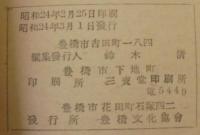 昭和24年2月25日印刷
昭和24年3月1日發行
豊橋市吉田町一八四
編集發行人 鈴木 清
豊橋市下地町
印刷所 三愛堂印刷所
電5449
豊橋市花田町石塚四二
發行所 豊橋文化協會